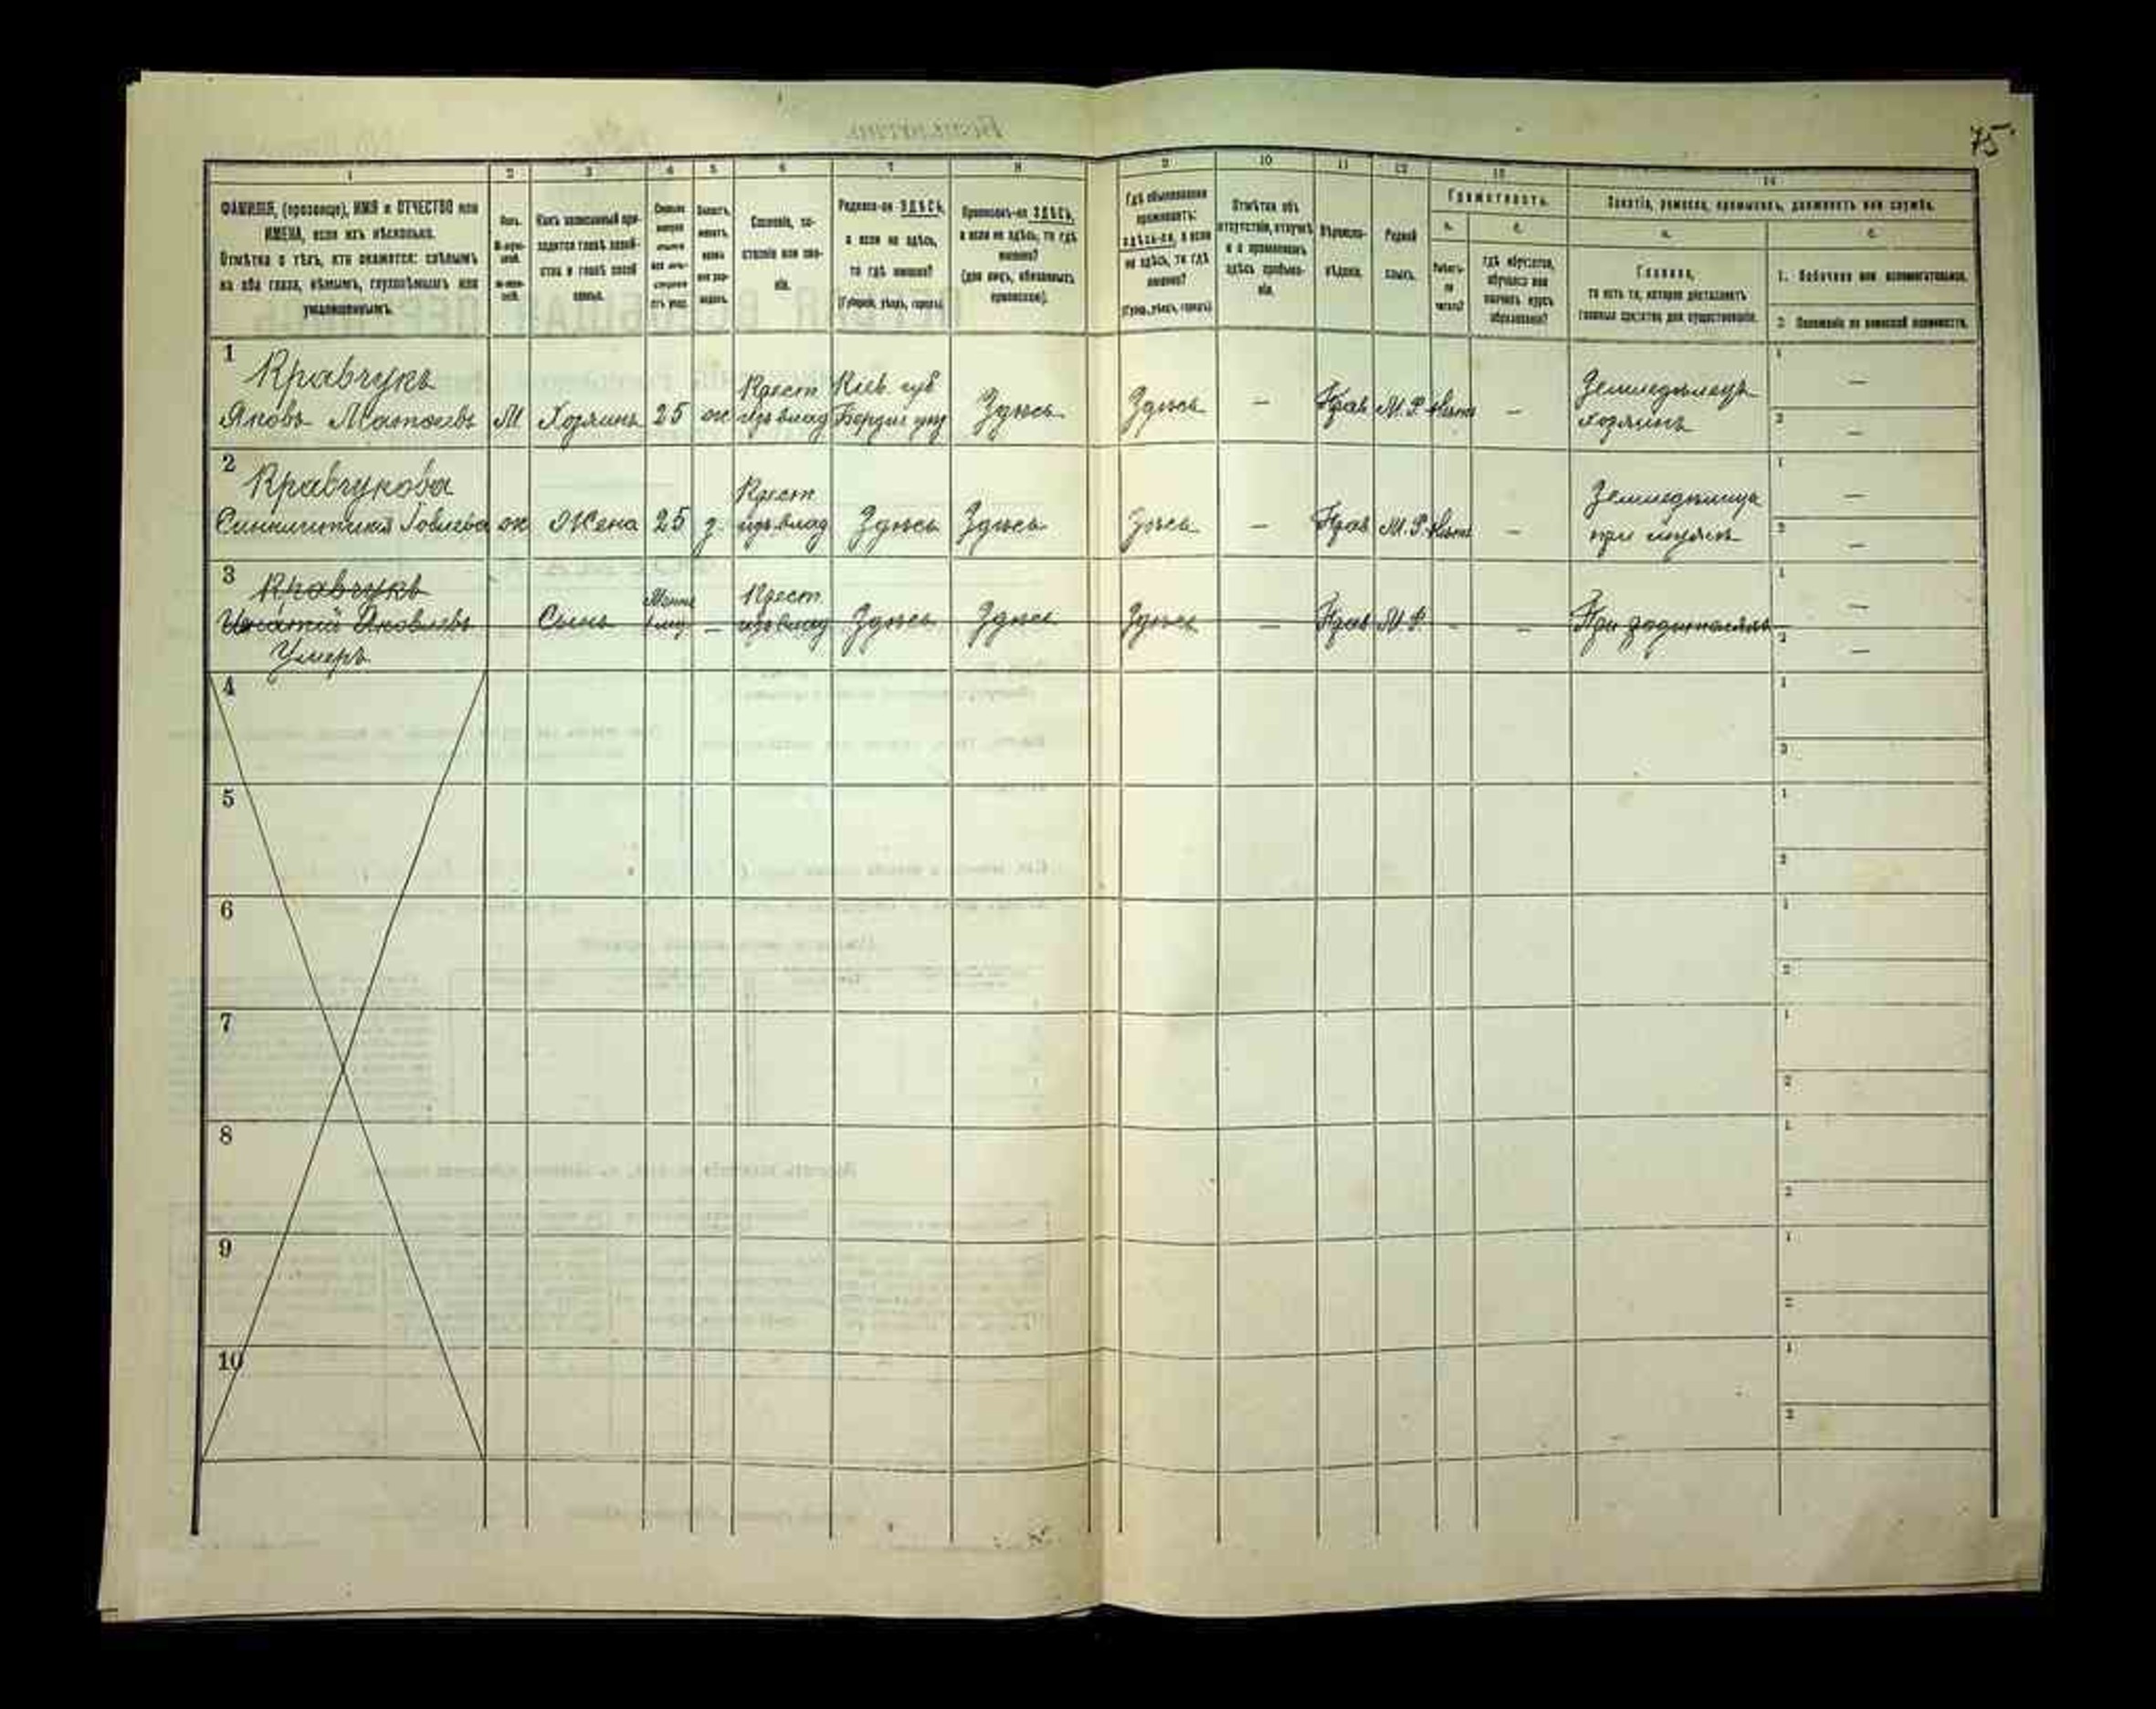 75
1 2 3 4 5 6 7 8 9 10 11 12 13 14
ФАМИЛІЯ, (прозвище), ИМЯ и ОТЧЕСТВО или
ИМЕНА, если ихъ нѣсколько.
Отмѣтка о тѣхъ, кто окажется: слѣпымъ
на оба глаза, нѣмымъ, глухонѣмымъ или
умалишеннымъ.
Полъ.
Какъ записанный при-
ходится главѣ хозяй-
ства и главѣ своей
семьи.
Сословіе, со-
стояніе или зва-
ніе.
Родился-ли ЗДѢСЬ,
а если не здѣсь,
то гдѣ именно?
(Губернія, уѣздъ, городъ).
Приписанъ-ли ЗДѢСЬ,
а если не здѣсь, то гдѣ
именно?
(для лицъ, обязанныхъ
припискою).
Гдѣ обыкновенно
проживаетъ:
здѣсь-ли, а если
не здѣсь, то гдѣ
именно?
(Губ., уѣздъ, городъ)
Отмѣтка объ
отсутствіи, отлучкѣ
и о временномъ
здѣсь пребыва-
ніи.
Вѣроиспо-
вѣданіе.
Родной
языкъ.
Грамотность.
а. б.
Умѣетъ-
ли
читать?
гдѣ обучается,
обучался или
кончилъ курсъ
образованія?
Занятіе, ремесло, промыселъ, должность или служба.
а. б.
Главное,
то есть то, которое доставляетъ
главныя средства для существованія.
1. Побочное или вспомогательное.
2. Положеніе по воинской повинности.
1 Кравчукъ Крест Кіев. губ Земледѣлецъ
Яковъ М Хозяинъ 25 ж изъ влад Бердич уѣз Здѣсь Здѣсь — Прав М.Р. Нѣтъ — хозяинъ
2 Кравчукова Крест
ж Жена 25 з. изъ влад Здѣсь Здѣсь Здѣсь — Прав М.Р. Нѣтъ — при мужѣ
3 Кравчукъ Крест
Яковлевъ Сынъ — изъ влад Здѣсь Здѣсь Здѣсь — Прав М.Р. — — При родителяхъ
Умеръ
4
5
6
7
8
9
10